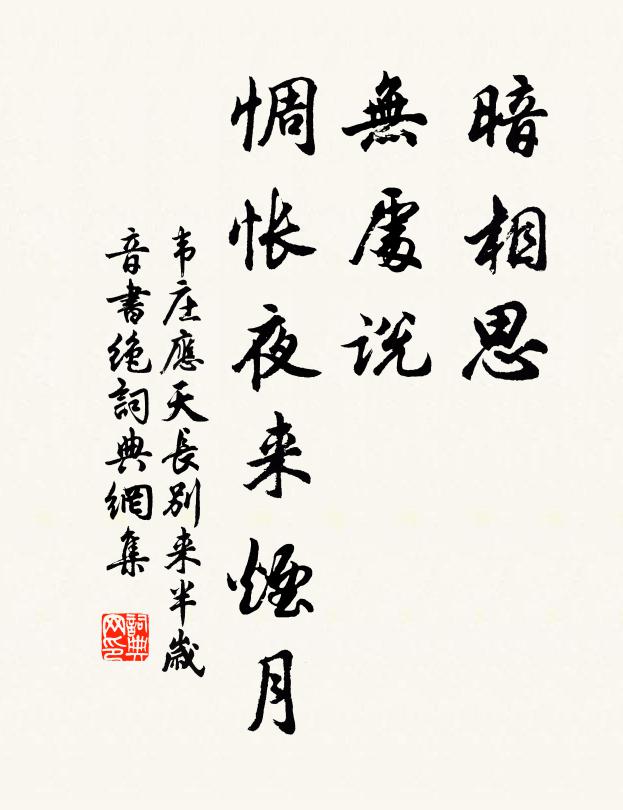 暗相思
無處説
惆怅夜来煙月
韦庄應天長別来半歲
音書絶詞典網集
詞典网印